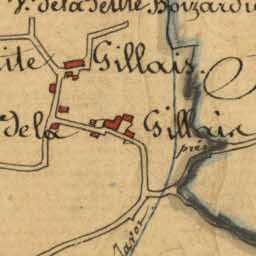 V. de la Petite Boizardi
ite Gillais.
de la Gillais
pré